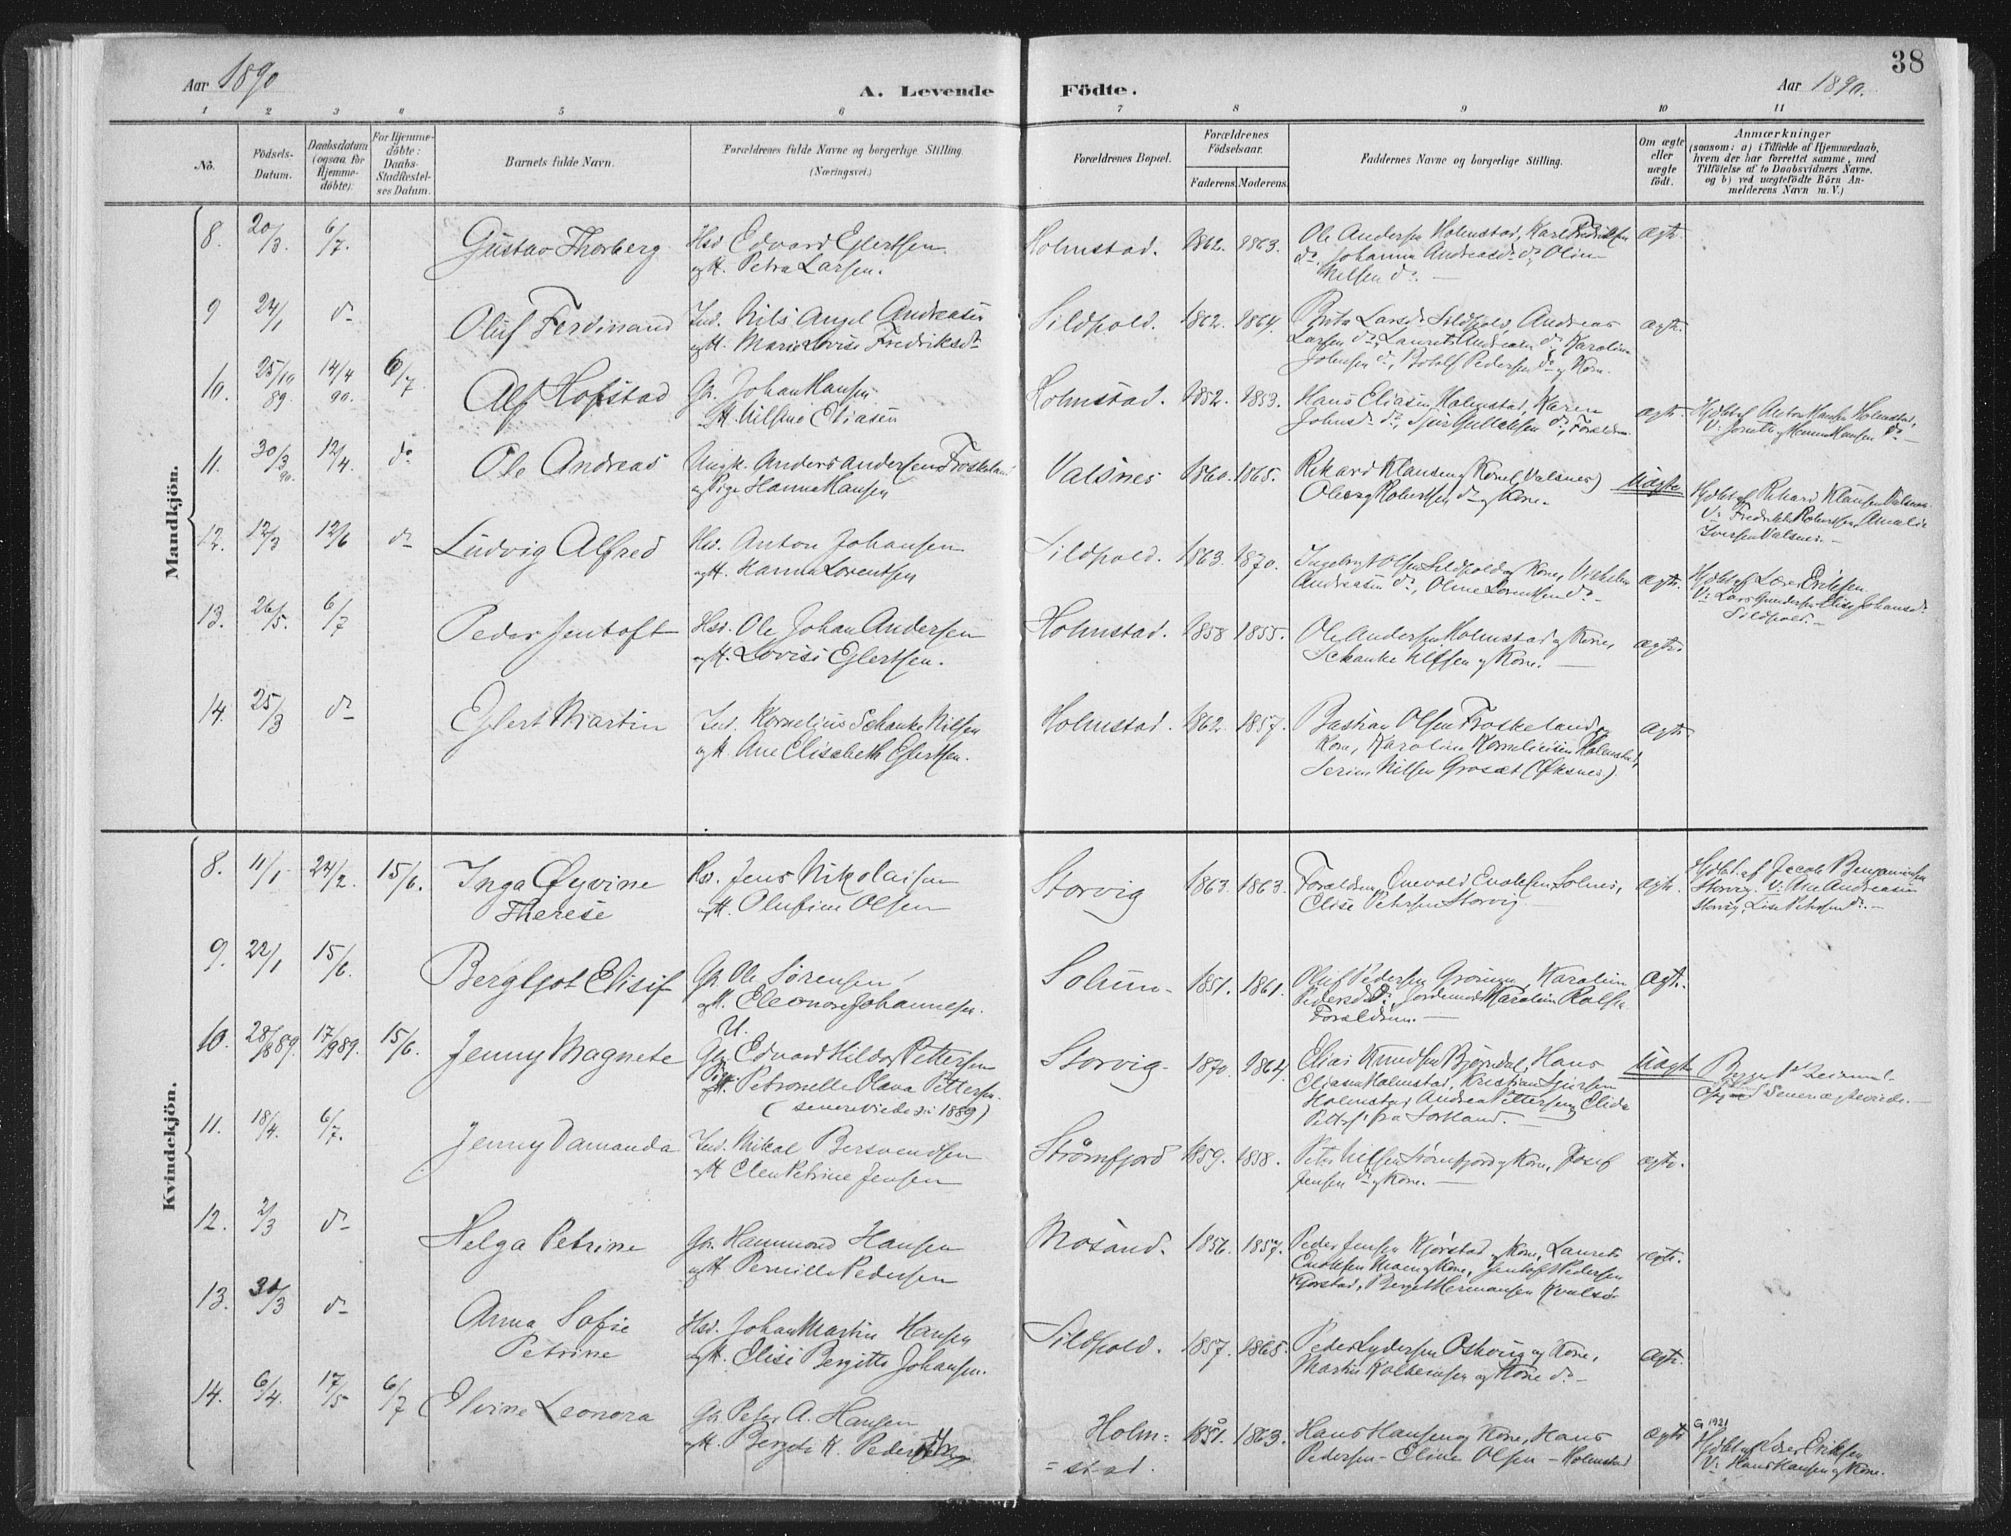 38
Aar 1890
A. Levende Födte.
Aar 1890.
1 2 3 4 5 6 7 8 9 10 11
No.
Födsels-Datum.
Daabsdatum (ogsaa for Hjemme-döbte).
For Hjemme-döbte: Daabs-Stadfæstel-ses Datum.
Barnets fulde Navn.
Forældrenes fulde Navne og borgerlige Stilling.
(Næringsvei.)
Forældrenes Bopæl.
Forældrenes Födselsaar.
Faderens. Moderens.
Faddernes Navne og borgerlige Stilling.
Om ægte eller uægte födt.
Anmærkninger
(saasom: a) i Tilfælde af Hjemmedaab,
hvem der har forrettet samme, med
Tilföielse af to Daabsvidners Navne,
og b) ved uægtefödte Börn An-
melderens Navn m. V.)
Mandkjön.
8. 20/3. 6/7. Gustav Thorberg
Hsd Edvard Eglertsen
og H. Petra Larsen.
Holmstad. 1862. 1863.
Ole Andersen Holmstad, Karl Fredriksen
do, Johanna Andreasdr do, Oline
Nilsen do. —
ægte.
9 24/1 do Oluf Ferdinand
Ind. Nils Angel Andreasen
og H. Marie Lovise Fredriksdr
Sildpold. 1862. 1864.
Brita Larsdr Sildpold, Andreas
Larsen do, Laurits Andreasen do, Karoline
Johnsen do, Botolf Pedersen do og Kone.
ægte.
10. 25/10 89. 14/4 90. 6/7 Alf Hofstad
Gr. Johan Hansen
H. Nilsine Eliasen
Holmstad. 1852. 1853.
Hans Eliasen Holmstad, Karen
Johnsdr do, do, Forældrene
ægte.
Hjdbt af Anton Hansen Holmstad,
V: og Hansen do —
11. 30/3 90. 12/4. do Ole Andreas
Ungk. Anders Andersen Froskeland
og Pige Hanna Hansen
Valsnes 1860. 1865.
Rikard Klausen og Kone, Valsnes)
Oberg Robertsen do og Kone.
Uægte
Hjdbt af Rikard Klausen Valsnes.
V: Fredrikke Robertsen, Amalie
Iversen Valsnes. —
12. 12/3 12/6 do Ludvig Alfred
Hsd. Anton Johansen
og H. Hanna Lorentsen
Sildpold. 1863. 1870.
Ingebrigt Olsen Sildpold og Kone, Vilhelm
Andreasen do, Oline Lorentsen do —
ægte.
Hjdbt af Lærer Eriksen
V: Lars Gundersen, Elise Johansdr
Sildpold. —
13. 26/5. 6/7 Peder Jentoft
Hsd. Ole Johan Andersen
og H. Lovise Eglertsen.
Holmstad. 1858 1855.
Ole Andersen Holmstad og Kone,
Schanke Nilsen og Kone. —
ægte.
14. 25/3 do Eglert Martin
Ind. Kornelius Schanke Nilsen
og H. Ane Elisabeth Eglertsen.
Holmstad. 1862 1857.
Bastian Olsen Froskeland og
Kone, Karoline Korneliusen Holmstad,
Serine Nilsen Grosæt (Øksnes)
ægte
Kvindekjön.
8. 11/1 24/2. 15/6. Inga Øyvine
Therese
Hsd. Jens Nikolaisen
og H. Olufine Olsen
Storvig 1863. 1863.
Forældrene, Enevold Enoksen Solnes,
Elise Petersen Storvig —
ægte.
Hjdbt. af Jacob Benjaminsen
Storvig. V: Ane Andreasen
Storvig, Lise Petersen do. —
9. 22/1 15/6. Bergljot Elisif
Gr. Ole Sörensen
og H. Eleonore Johannesen.
Solum — 1851. 1861.
Oluf Pedersen Gröningen, Karoline
Pedersdr do, Jordemor Karoline Rolfs
Forældrene. —
ægte.
10. 28/8 89. 17/9 89. 15/6. Jenny Magnete
U.
Edvard Hildor Pettersen
Petronelle Olava Pettersen.
(senere viede 1889)
Storvig — 1870. 1864.
Elias Knudsen Bjørndal, Hans
Eliasen Holmstad, Kristian
Holmstad, Andrea Pettersen, Elida
Petters fra Sortland. —
Uægte
senere ægteviede. —
11. 18/4. 6/7. Jenny Damanda
Ind. Mikal Bersvendsen
og H. Elen Petrine Jensen
Strömfjord 1859. 1858.
Peter Nilsen Strömfjord og Kone, Josef
Jensen do og Kone. —
ægte.
12. 2/3 do Helga Petrine
Gr. Hammond Hansen
og H. Pernille Pedersen
Mosand. 1856. 1857.
Peder Jensen Kjørstad og Kone, Laurits
Enoksen og Kone, Jentoft Pedersen
Kjørstad, Berget Hermansen Kvalsör
ægte.
13. 30/3 do Anna Sofie
Petrine
Hsd. Johan Martin Hansen
og H. Elise Bergitte Johansen.
Sildpold. 1857. 1865.
Peder Lydersen Oshaug og Kone,
Martin Kolbeinsen og Kone do —
ægte.
14. 6/4. 17/5 6/7 Elvine Leonora
Gr. Peter A. Hansen
og H. Bergete K. Pedersen
Holm=
=stad. 1851. 1863.
Hans Hansen og Kone, Hans
Pedersen — Eline Olsen — Holmstad
ægte
G 1921
Hjdbt af Lærer Eriksen
V: Hans Hansen og Kone.